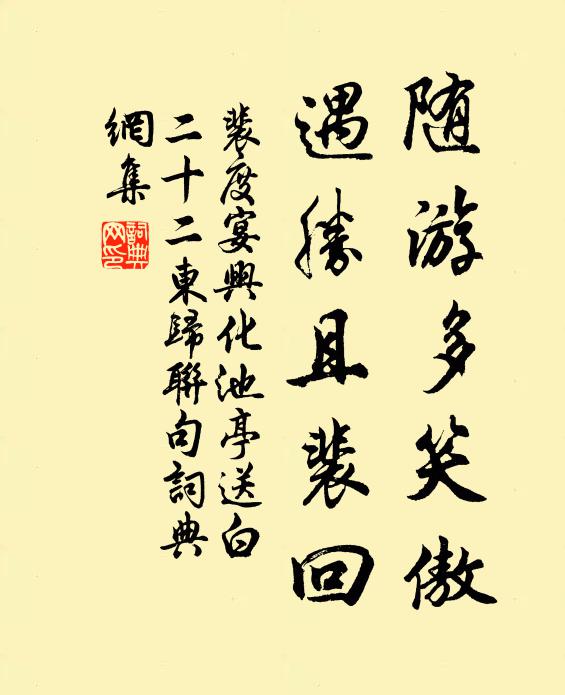 随游多笑傲
遇勝且裴回
裴度宴興化池亭送白
二十二東歸聯句詞典
網集
詞典
网印